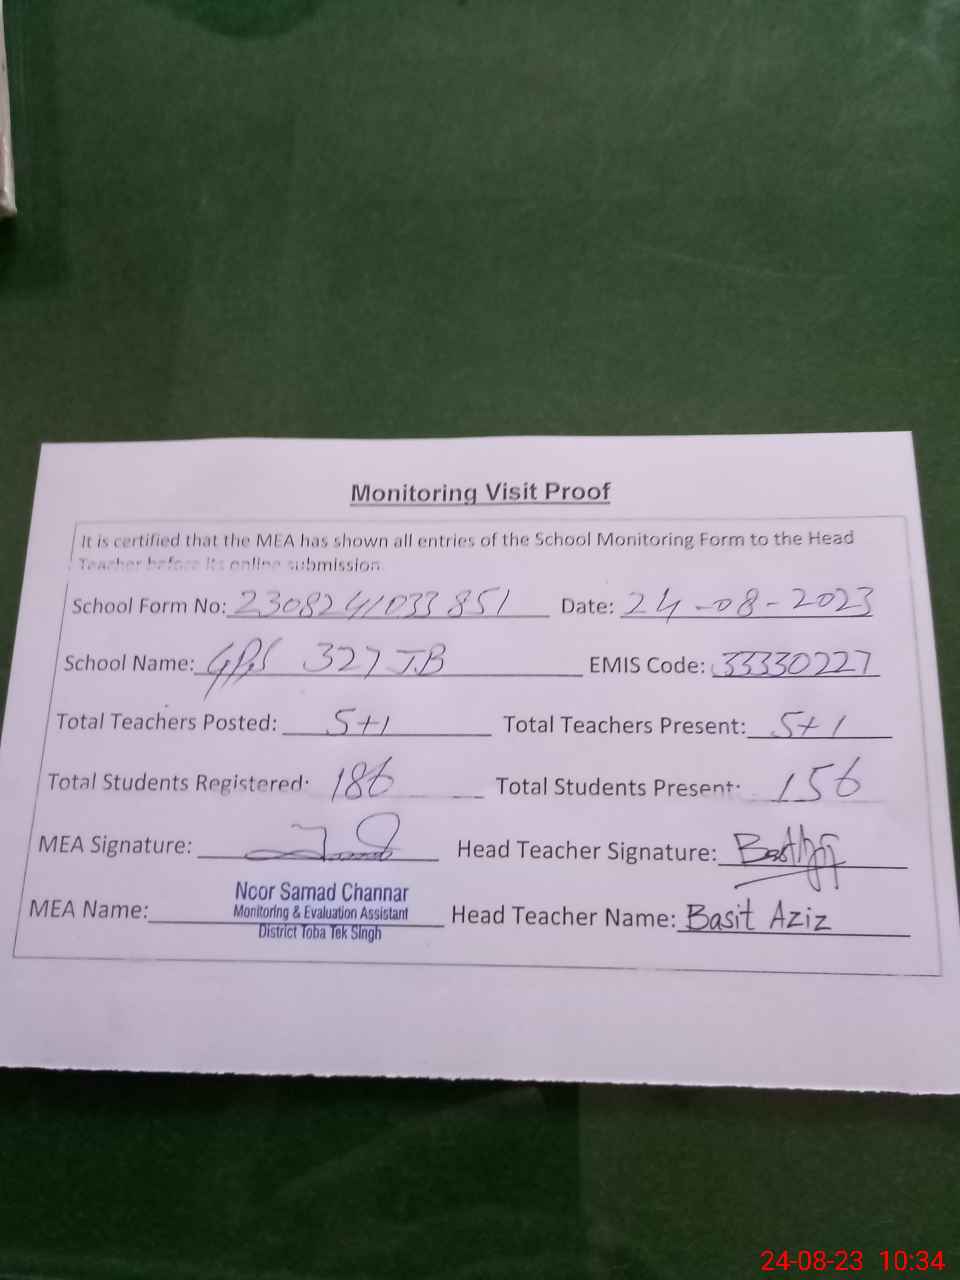 Monitoring Visit Proof
It is certified that the MEA has shown all entries of the School Monitoring Form to the Head
Teacher before its online submission.
School Form No: 2308241033851 Date: 24-08-2023
School Name: GPS 327 J.B EMIS Code: 33330227
Total Teachers Posted: 5+1 Total Teachers Present: 5+1
Total Students Registered: 186 Total Students Present: 156
MEA Signature: Head Teacher Signature:
MEA Name: Noor Samad Channar Head Teacher Name: Basit Aziz
Monitoring & Evaluation Assistant
District Toba Tek Singh
24-08-23 10:34